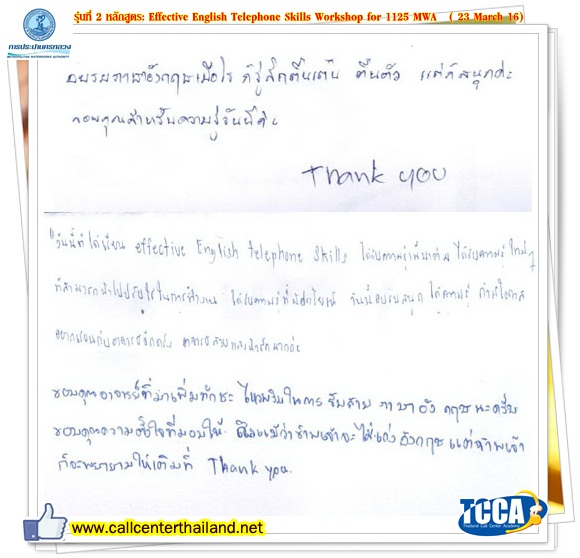 รุ่นที่ 2 หลักสูตร: Effective English Telephone Skills Workshop for 1125 MWA ( 23 March 16)
การประปานครหลวง
METROPOLITAN WATERWORKS AUTHORITY
อบรมภาษาอังกฤษเมื่อไร ก็รู้สึกตื่นเต้น ตื่นตัว แต่ก็สนุกค่ะ
ขอบคุณสำหรับความรู้วันนี้ค่ะ
Thank you
"วันนี้ที่ได้เรียน effective English telephone Skills ได้รับความรู้เพิ่มเติม ได้รับความรู้ใหม่ๆ
ที่สามารถนำไปปรับใช้ในการทำงาน ได้รับความรู้ที่มีประโยชน์ วันนี้อบรมสนุก ได้ความรู้ ถ้ามีโอกาส
อยากเรียนกับอาจารย์อีกครั้ง อาจารย์สวยและน่ารักมากค่ะ
ขอบคุณอาจารย์ที่มาเพิ่มทักษะ ไหวพริบในการ รับสาย ภาษาอังกฤษนะครับ
ขอบคุณความตั้งใจที่มอบให้ ถึงแม้ว่าข้าพเจ้าจะไม่เก่งอังกฤษ แต่ข้าพเจ้า
ก็จะพยายามให้เต็มที่ Thank you.
www.callcenterthailand.net
TCCA
Thailand Call Center Academy